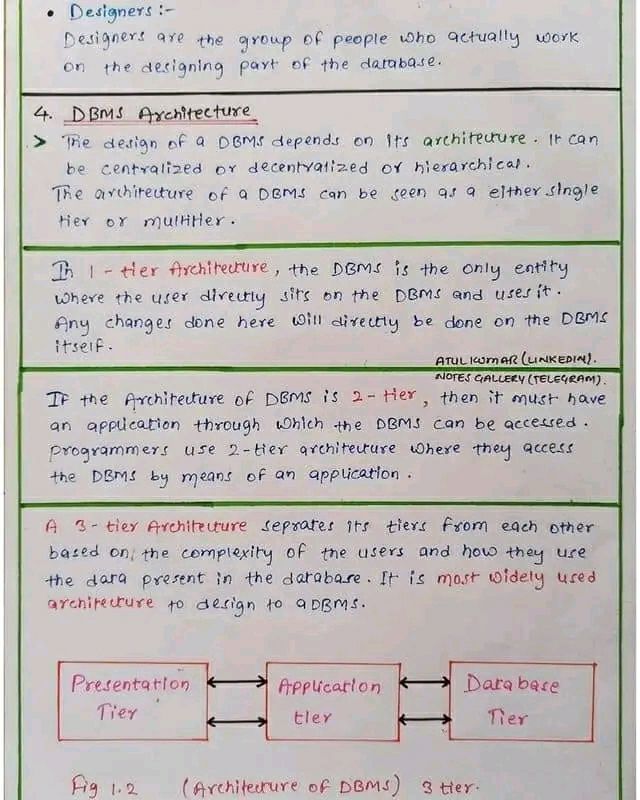 • Designers :-
Designers are the group of people who actually work
on the designing part of the database.
4. DBMS Architecture
> The design of a DBMS depends on its architecture. It can
be centralized or decentralized or hierarchical.
The architecture of a DBMS can be seen as a either single
tier or multitier.
In 1-tier Architecture, the DBMS is the only entity
where the user directly sits on the DBMS and uses it.
Any changes done here will directly be done on the DBMS
itself.
ATUL KUMAR (LINKEDIN).
NOTES GALLERY (TELEGRAM).
If the Architecture of DBMS is 2-tier, then it must have
an application through which the DBMS can be accessed.
programmers use 2-tier architecture where they access
the DBMS by means of an application.
A 3-tier Architecture seprates its tiers from each other
based on, the complexity of the users and how they use
the data present in the database. It is most widely used
architecture to design to a DBMS.
Presentation Application Database
Tier tier Tier
Fig 1.2 (Architecture of DBMS) 3 tier.